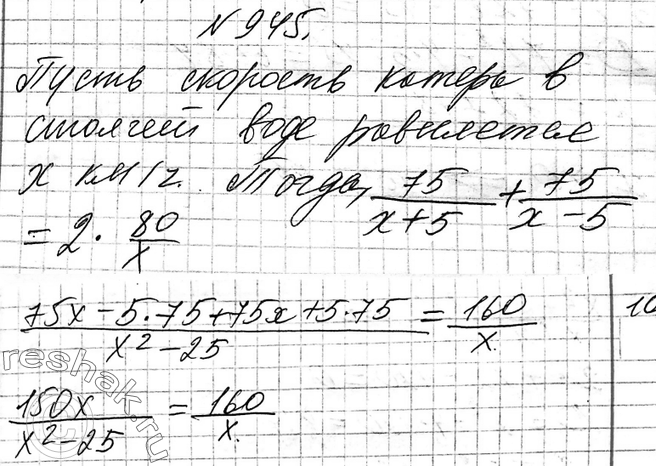 № 945.
Пусть скорость катера в
стоячей воде равняется
x км/г. Тогда, 75/(x+5) + 75/(x-5)
= 2 · 80/x
(75x - 5·75 + 75x + 5·75)/(x² - 25) = 160/x.
150x/(x² - 25) = 160/x.
reshak.ru